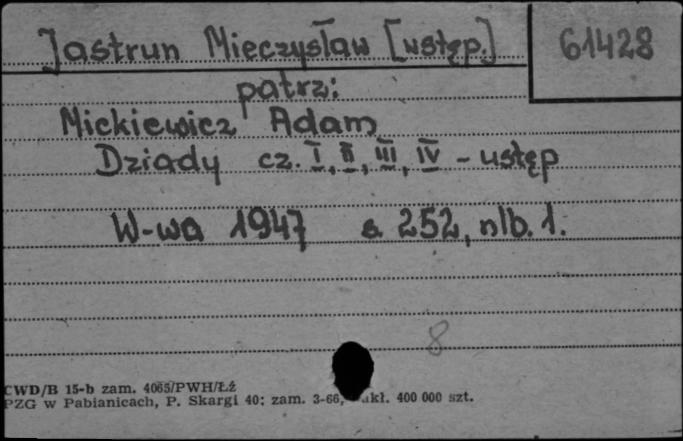 Jastrun Mieczysław [wstęp.] 61428
patrz:
Mickiewicz Adam
Dziady cz. I, II, III, IV - ustęp
W-wa 1947 s. 252, nlb. 1.
8
CWD/B 15-b zam. 4065/PWH/Łź
PZG w Pabianicach, P. Skargi 40; zam. 3-66, akł. 400 000 szt.